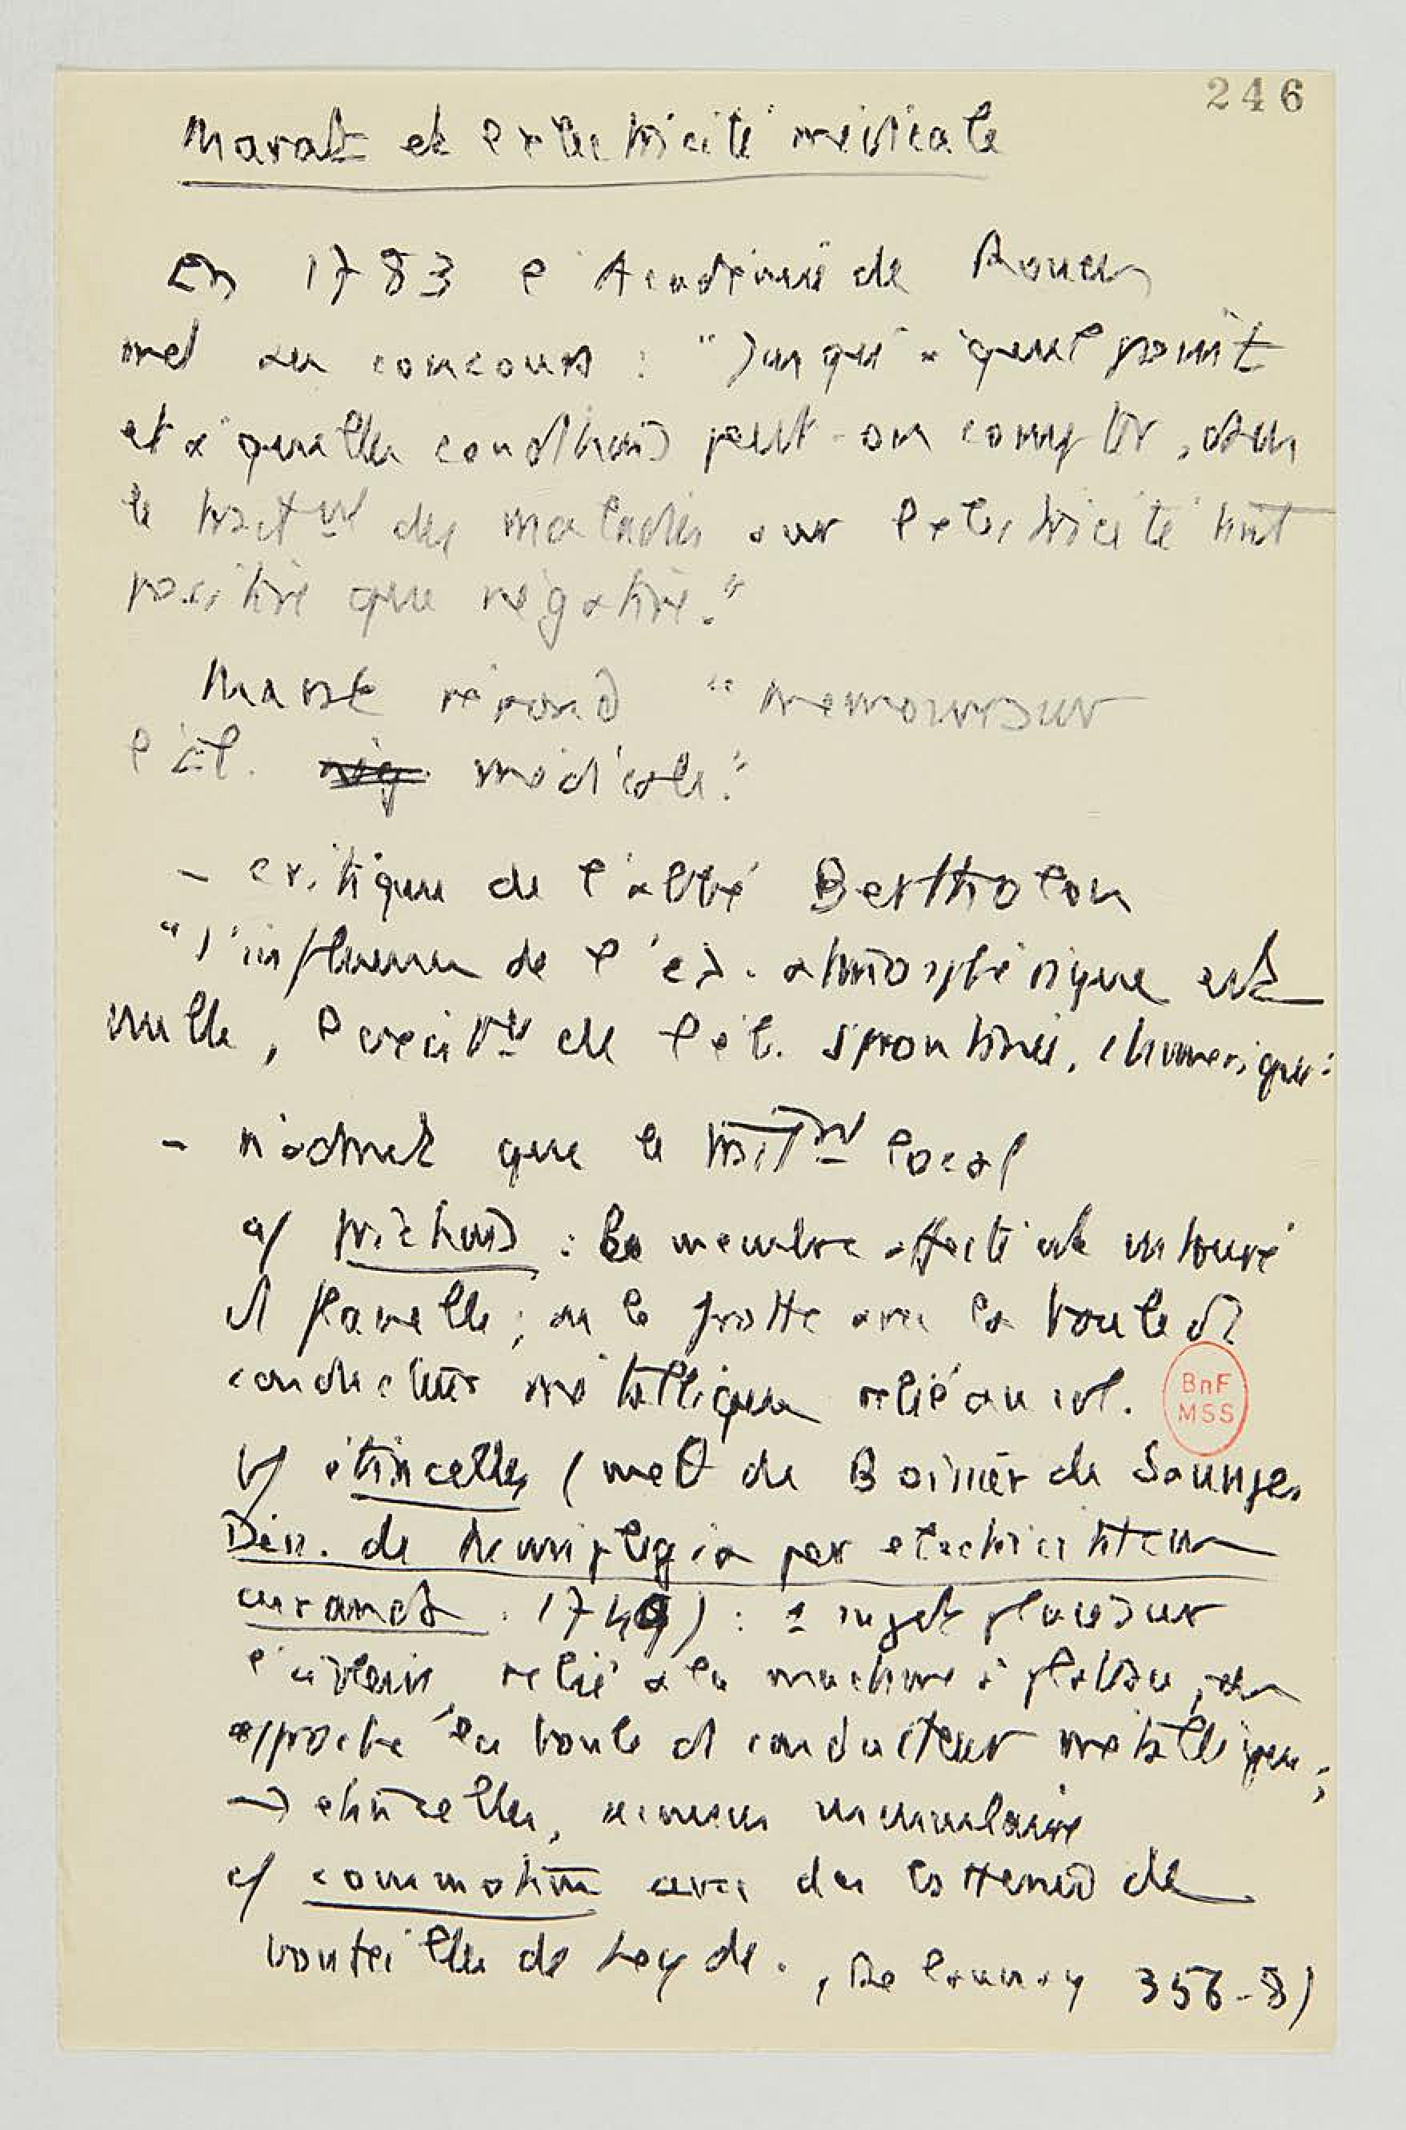 246
Marat et l'electricité médicale
En 1783 l'Académie de Rouen
met au concours : "Jusqu'à quel point
et à quelles conditions peut-on compter, dans
le traitmt des maladies sur l'electricité tant
positive que négative."
Marat répond "memoire sur
l'él. médicale."
- critique de l'abbé Bertholon
"l'influence de l'él. atmosphérique est
nulle, l'excitn de l'él. spontanée, chimérique"
- n'admet que le traitmt local
a/ friction : le membre affecté est entouré
d flanelle ; on le frotte avec la boule d'1
conducteur métallique relié au sol.
b/ étincelles (meth de Boissier de Sauvages
Diss. de hemiplegia per electricitatem
curanda. 1749) : 1 sujet placé sur
l'isoloir, relié à la machine à plateau, on
approche la boule d conducteur métallique ;
→ etincelles, musculaire
c/ commotion avec des batteries de
bouteilles de Leyde. (Delaunay 356-8)
BnF
MSS